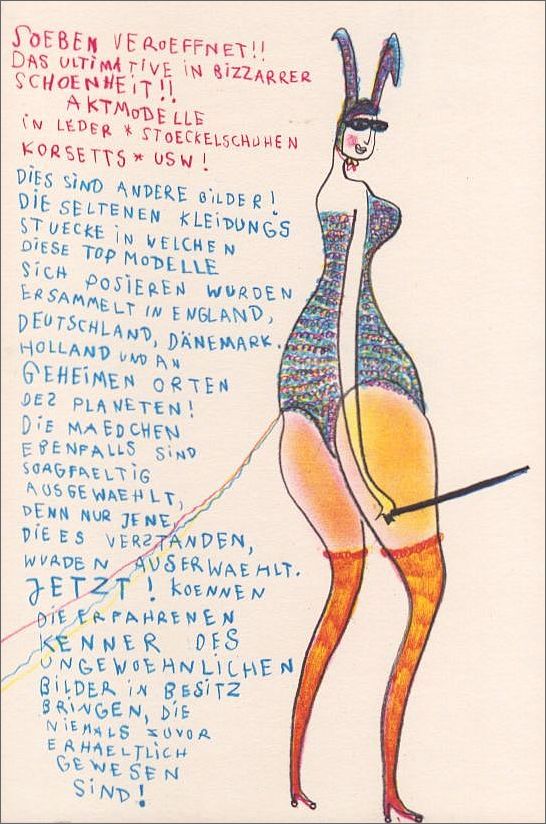 SOEBEN VEROEFFNET!!
DAS ULTIMATIVE IN BIZZARRER
SCHOENHEIT!!
AKTMODELLE
IN LEDER * STOECKELSCHUHEN
KORSETTS * USW!
DIES SIND ANDERE BILDER!
DIE SELTENEN KLEIDUNGS
STUECKE IN WELCHEN
DIESE TOP MODELLE
SICH POSIEREN WURDEN
ERSAMMELT IN ENGLAND,
DEUTSCHLAND, DÄNEMARK.
HOLLAND UND AN
GEHEIMEN ORTEN
DES PLANETEN!
DIE MAEDCHEN
EBENFALLS SIND
SORGFAELTIG
AUSGEWAEHLT,
DENN NUR JENE,
DIE ES VERSTANDEN,
WURDEN AUSERWAEHLT.
JETZT! KOENNEN
DIE ERFAHRENEN
KENNER DES
UNGEWOEHNLICHEN
BILDER IN BESITZ
BRINGEN, DIE
NIEMALS ZUVOR
ERHAELTLICH
GEWESEN
SIND!